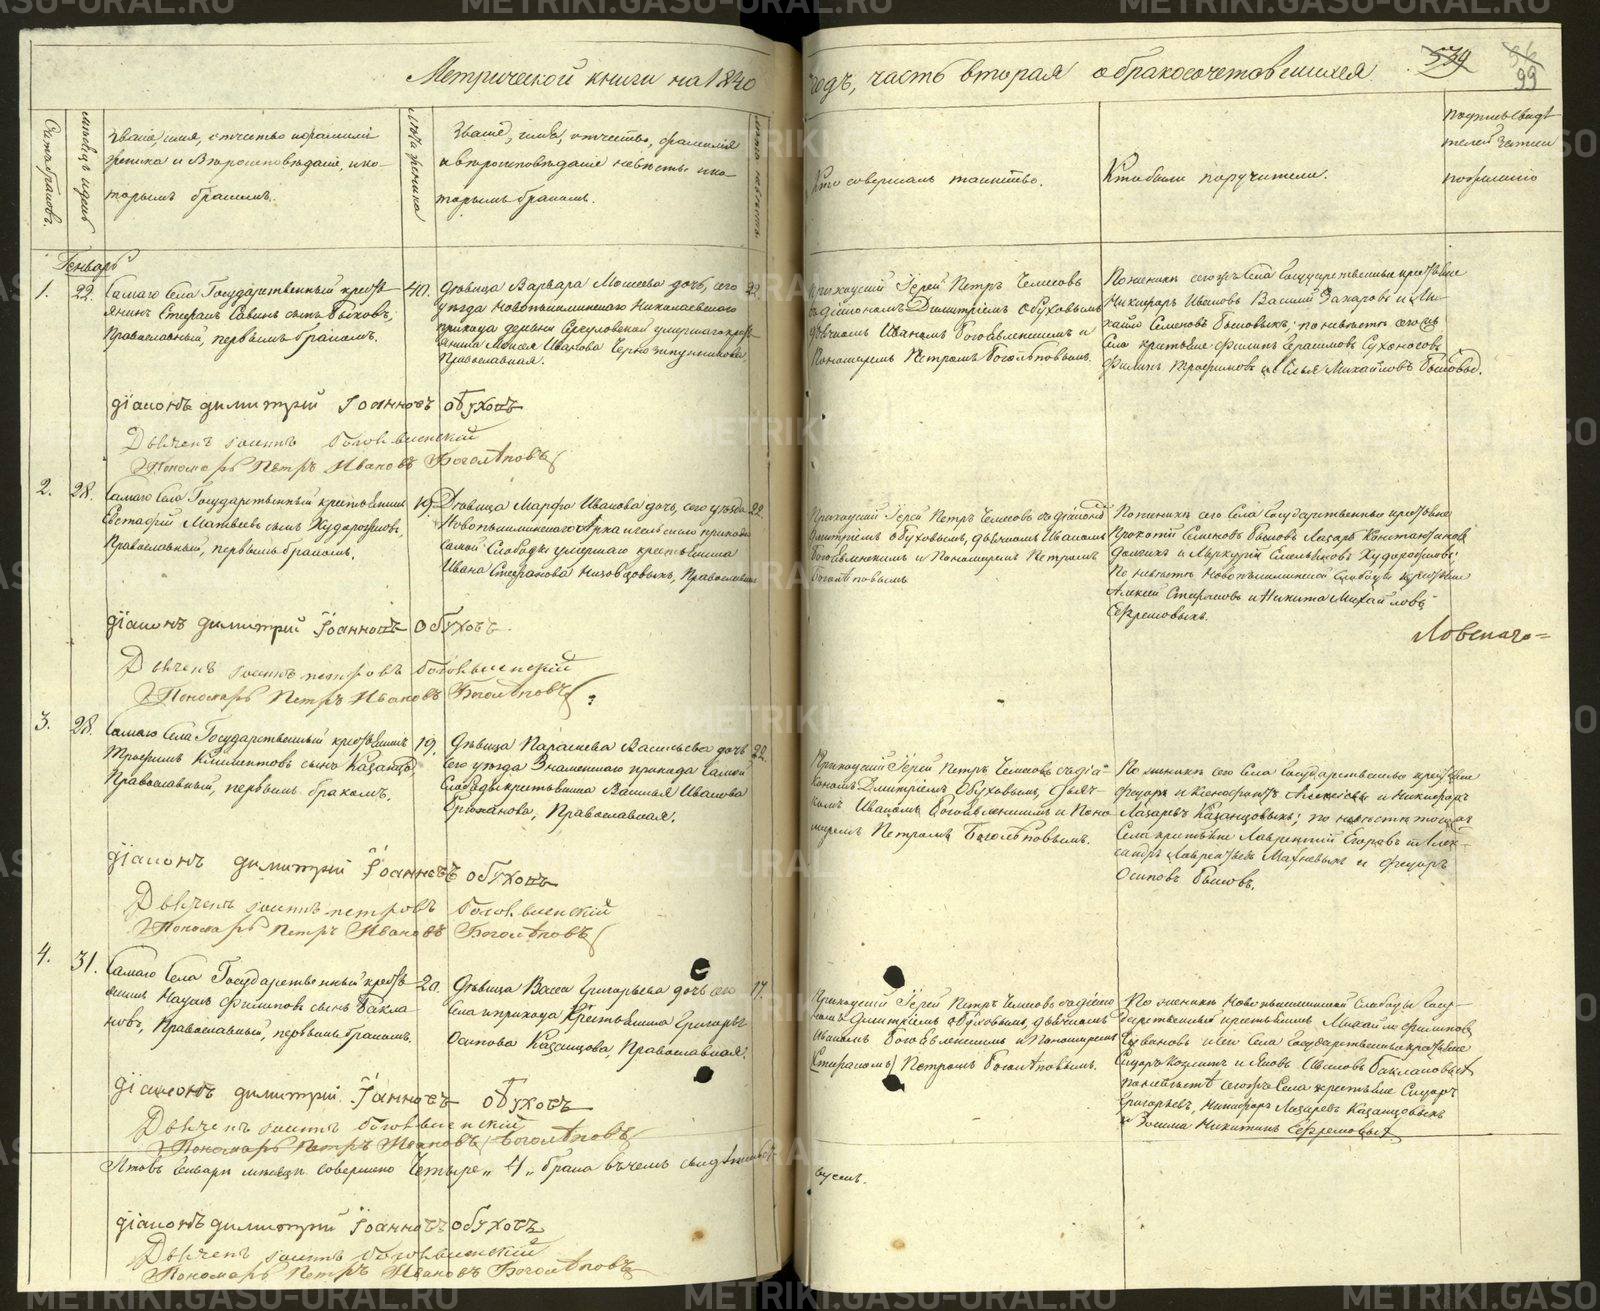 Метрической книги на 1840 годъ, часть вторая о бракосочетовшихся
539
99
Счетъ браковъ.
Званіе, имя, отчество и фамилія
жениха и Вѣроисповѣданіе, и ко-
торымъ бракомъ.
Лѣта жениха
Званіе, имя, отчество, фамилія
и вѣроисповѣданіе невѣсты и ко-
торымъ бракомъ.
Кто совершалъ таинство.
Кто были поручители.
Генварь
1. 22. Самаго Села Государственный крестья-
янинъ Стефанъ Савинъ сынъ Быковъ,
Православный, первымъ бракомъ.
40.
Дѣвица Варвара Моисеева дочь, сего
уѣзда Новопышминскаго Николаевскаго
прихода деревни умершаго крестья-
янина Моисея Иванова
Православная.
22.
Приходскій Іерей Петръ Чемесовъ
съ діакономъ Димитріемъ Обуховымъ
дьячкомъ Иваномъ Богоявленскимъ и
Пономаремъ Петромъ Боголѣповымъ.
По женихѣ сего Села Государственные крестьяне
Никифоръ Ивановъ Василій Захаровъ и Ми-
хаилъ Семеновъ Быковыхъ; по невѣстѣ сегожъ
Села крестьяне Филипъ Герасимовъ Сухоносовъ
Филипъ Трофимовъ и Илья Михайловъ
діаконъ димитрій Іоанновъ обуховъ
Дьячекъ Богоявленскій
Пономарь Петръ Ивановъ Боголѣповъ
2. 28. Самаго Села Государственный крестьянинъ
Евстафій Матвѣевъ сынъ Худорожковъ,
Православный, первымъ бракомъ.
19.
Дѣвица Марфа Иванова дочь, сего уѣзда
Новопышминскаго прихода
самой Слободы умершаго крестьянина
Ивана Стефанова Низовцовыхъ, Православная
22.
Приходскій Іерей Петръ Чемесовъ съ діакономъ
Дмитріемъ Обуховымъ, дьячкомъ Иваномъ
Богоявленскимъ и Пономаремъ Петромъ
Боголѣповымъ
По женихѣ сего Села Государственные крестьяне
Прокопій Семеновъ Быковъ Лазарь Константиновъ
и Меркурій Емельяновъ Худорожковъ;
По невѣстѣ Новопышминской Слободы крестьяне
Алексѣй Стефановъ и Никита Михайловъ
Ефремовыхъ.
діаконъ димитрій Іоанновъ Обуховъ
Дьячекъ петровъ Богоявленскій
Пономарь Петръ Ивановъ Боголѣповъ
3. 28. Самаго Села Государственный крестьянинъ
Трофимъ Климентовъ сынъ Казанцовъ,
Православный, первымъ бракомъ.
19.
Дѣвица Параскева Васильева дочь
сего уѣзда Знаменскаго прихода самой
Слободы крестьянина Василья Иванова
Православная.
22.
Приходскій Іерей Петръ Чемесовъ съ діа-
кономъ Дмитріемъ Обуховымъ, дьяч-
комъ Иваномъ Богоявленскимъ и Поно-
маремъ Петромъ Боголѣповымъ.
По женихѣ сего Села Государственные крестьяне
Федоръ и Ксенофонтъ Алексѣевы и Никифоръ
Лазаревъ Казанцовыхъ; по невѣстѣ тогожъ
Села крестьяне Лаврентій Егоровъ и Алек-
сандръ Лаврентьевъ Махневыхъ и Федоръ
Осиповъ Быковъ.
діаконъ димитрій Іоанновъ обуховъ
Дьячекъ петровъ Богоявленскій
Пономарь Петръ Ивановъ Боголѣповъ
4. 31. Самаго Села Государственный крестья-
янинъ Наумъ Филиповъ сынъ Бакла-
новъ, Православный, первымъ бракомъ.
20.
Дѣвица Васса Григорьева дочь сего
Села и прихода Крестьянина Григорья
Осипова Казанцова, Православная.
17.
Приходскій Іерей Петръ Чемесовъ съ діако-
номъ Дмитріемъ Обуховымъ, дьячкомъ
Иваномъ Богоявленскимъ и Пономаремъ
Петромъ Боголѣповымъ.
По женихѣ Новопышминской Слободы Госу-
дарственный крестьянинъ Михайло Филиповъ
и сего Села Государственные крестьяне
Сидоръ и Яковъ Баклановыхъ
по невѣстѣ сегожъ Села крестьяне Сидоръ
Григорьевъ, Никифоръ Лазаревъ Казанцовыхъ
и Зосима Никитинъ Ефремовыхъ
діаконъ димитрій Іанновъ обуховъ
Дьячекъ Богоявленскій
Пономарь Петръ Ивановъ Боголѣповъ
Итого въ Генварѣ мѣсяцѣ совершено Четыре „4„ брака въ чемъ свидѣтельст-
вуемъ.
діаконъ димитрій Іоанновъ обуховъ
Дьячекъ Богоявленскій
Пономарь Петръ Ивановъ Боголѣповъ
METRIKI.GASO-URAL.RU